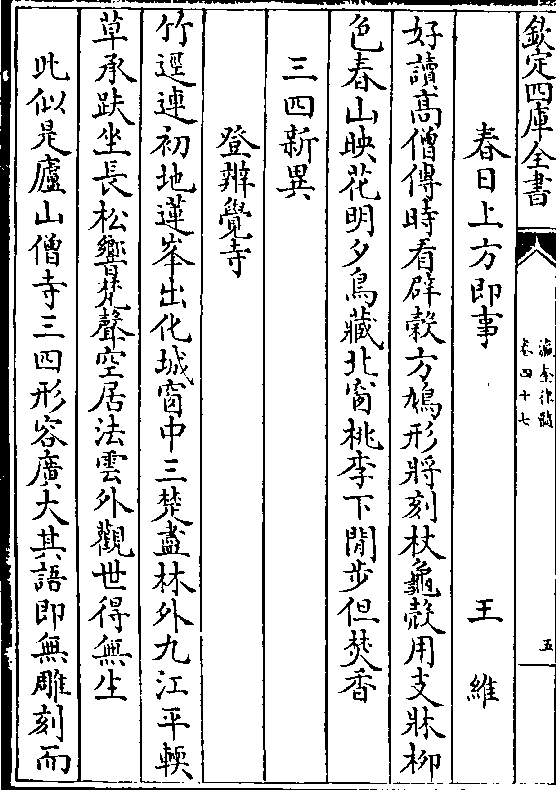 欽定四庫全書
瀛奎律髓
卷四十七
五
春日上方即事　王維
好讀髙僧傳時看辟榖方鳩形將刻杖龜殻用支牀柳
色春山映花明夕鳥藏北窗桃李下閒步但焚香
三四新異
登辨覺寺
竹逕連初地蓮峯出化城窗中三楚盡林外九江平輭
草承趺坐長松響梵聲空居法雲外觀世得無生
此似是廬山僧寺三四形容廣大其語即無雕刻而